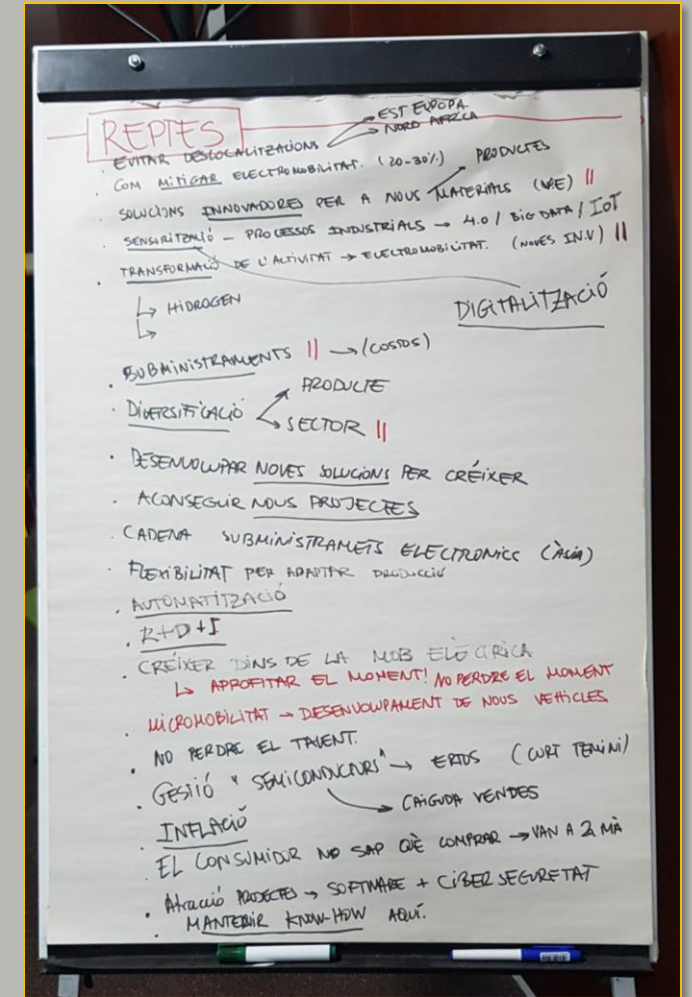 REPTES
EST EUROPA.
NORD AFRICA
· EVITAR DESLOCALITZACIONS
· COM MITIGAR ELECTROMOBILITAT. (20-30%)
PRODUCTES
· SOLUCIONS INNOVADORES PER A NOUS MATERIALS (VE) ||
· SENSORITZACIÓ – PROCESSOS INDUSTRIALS → 4.0 / BIG DATA / IOT
· TRANSFORMACIÓ DE L'ACTIVITAT → ELECTROMOBILITAT. (NOVES IN.V) ||
↳ HIDROGEN
↳
DIGITALITZACIÓ
· SUBMINISTRAMENTS || → (COSTOS)
PRODUCTE
· DIVERSIFICACIÓ
SECTOR ||
· DESENVOLUPAR NOVES SOLUCIONS PER CRÉIXER
· ACONSEGUIR NOUS PROJECTES
· CADENA SUBMINISTRAMETS ELECTRONICS (Àsia)
· FLEXIBILITAT PER ADAPTAR PRODUCCIÓ
· AUTOMATITZACIÓ
· R+D+I
· CRÉIXER DINS DE LA MOB ELÈCTRICA
↳ APROFITAR EL MOMENT! NO PERDRE EL MOMENT
· MICROMOBILITAT → DESENVOLUPAMENT DE NOUS VEHICLES
· NO PERDRE EL TALENT.
· GESTIÓ "SEMICONDUCTORS" → ERTOS (CURT TERMINI)
→ CAIGUDA VENDES
· INFLACIÓ
· EL CONSUMIDOR NO SAP QUÈ COMPRAR → VAN A 2a MÀ
· Atracció PROJECTES → SOFTWARE + CIBERSEGURETAT
· MANTENIR KNOW-HOW AQUÍ.